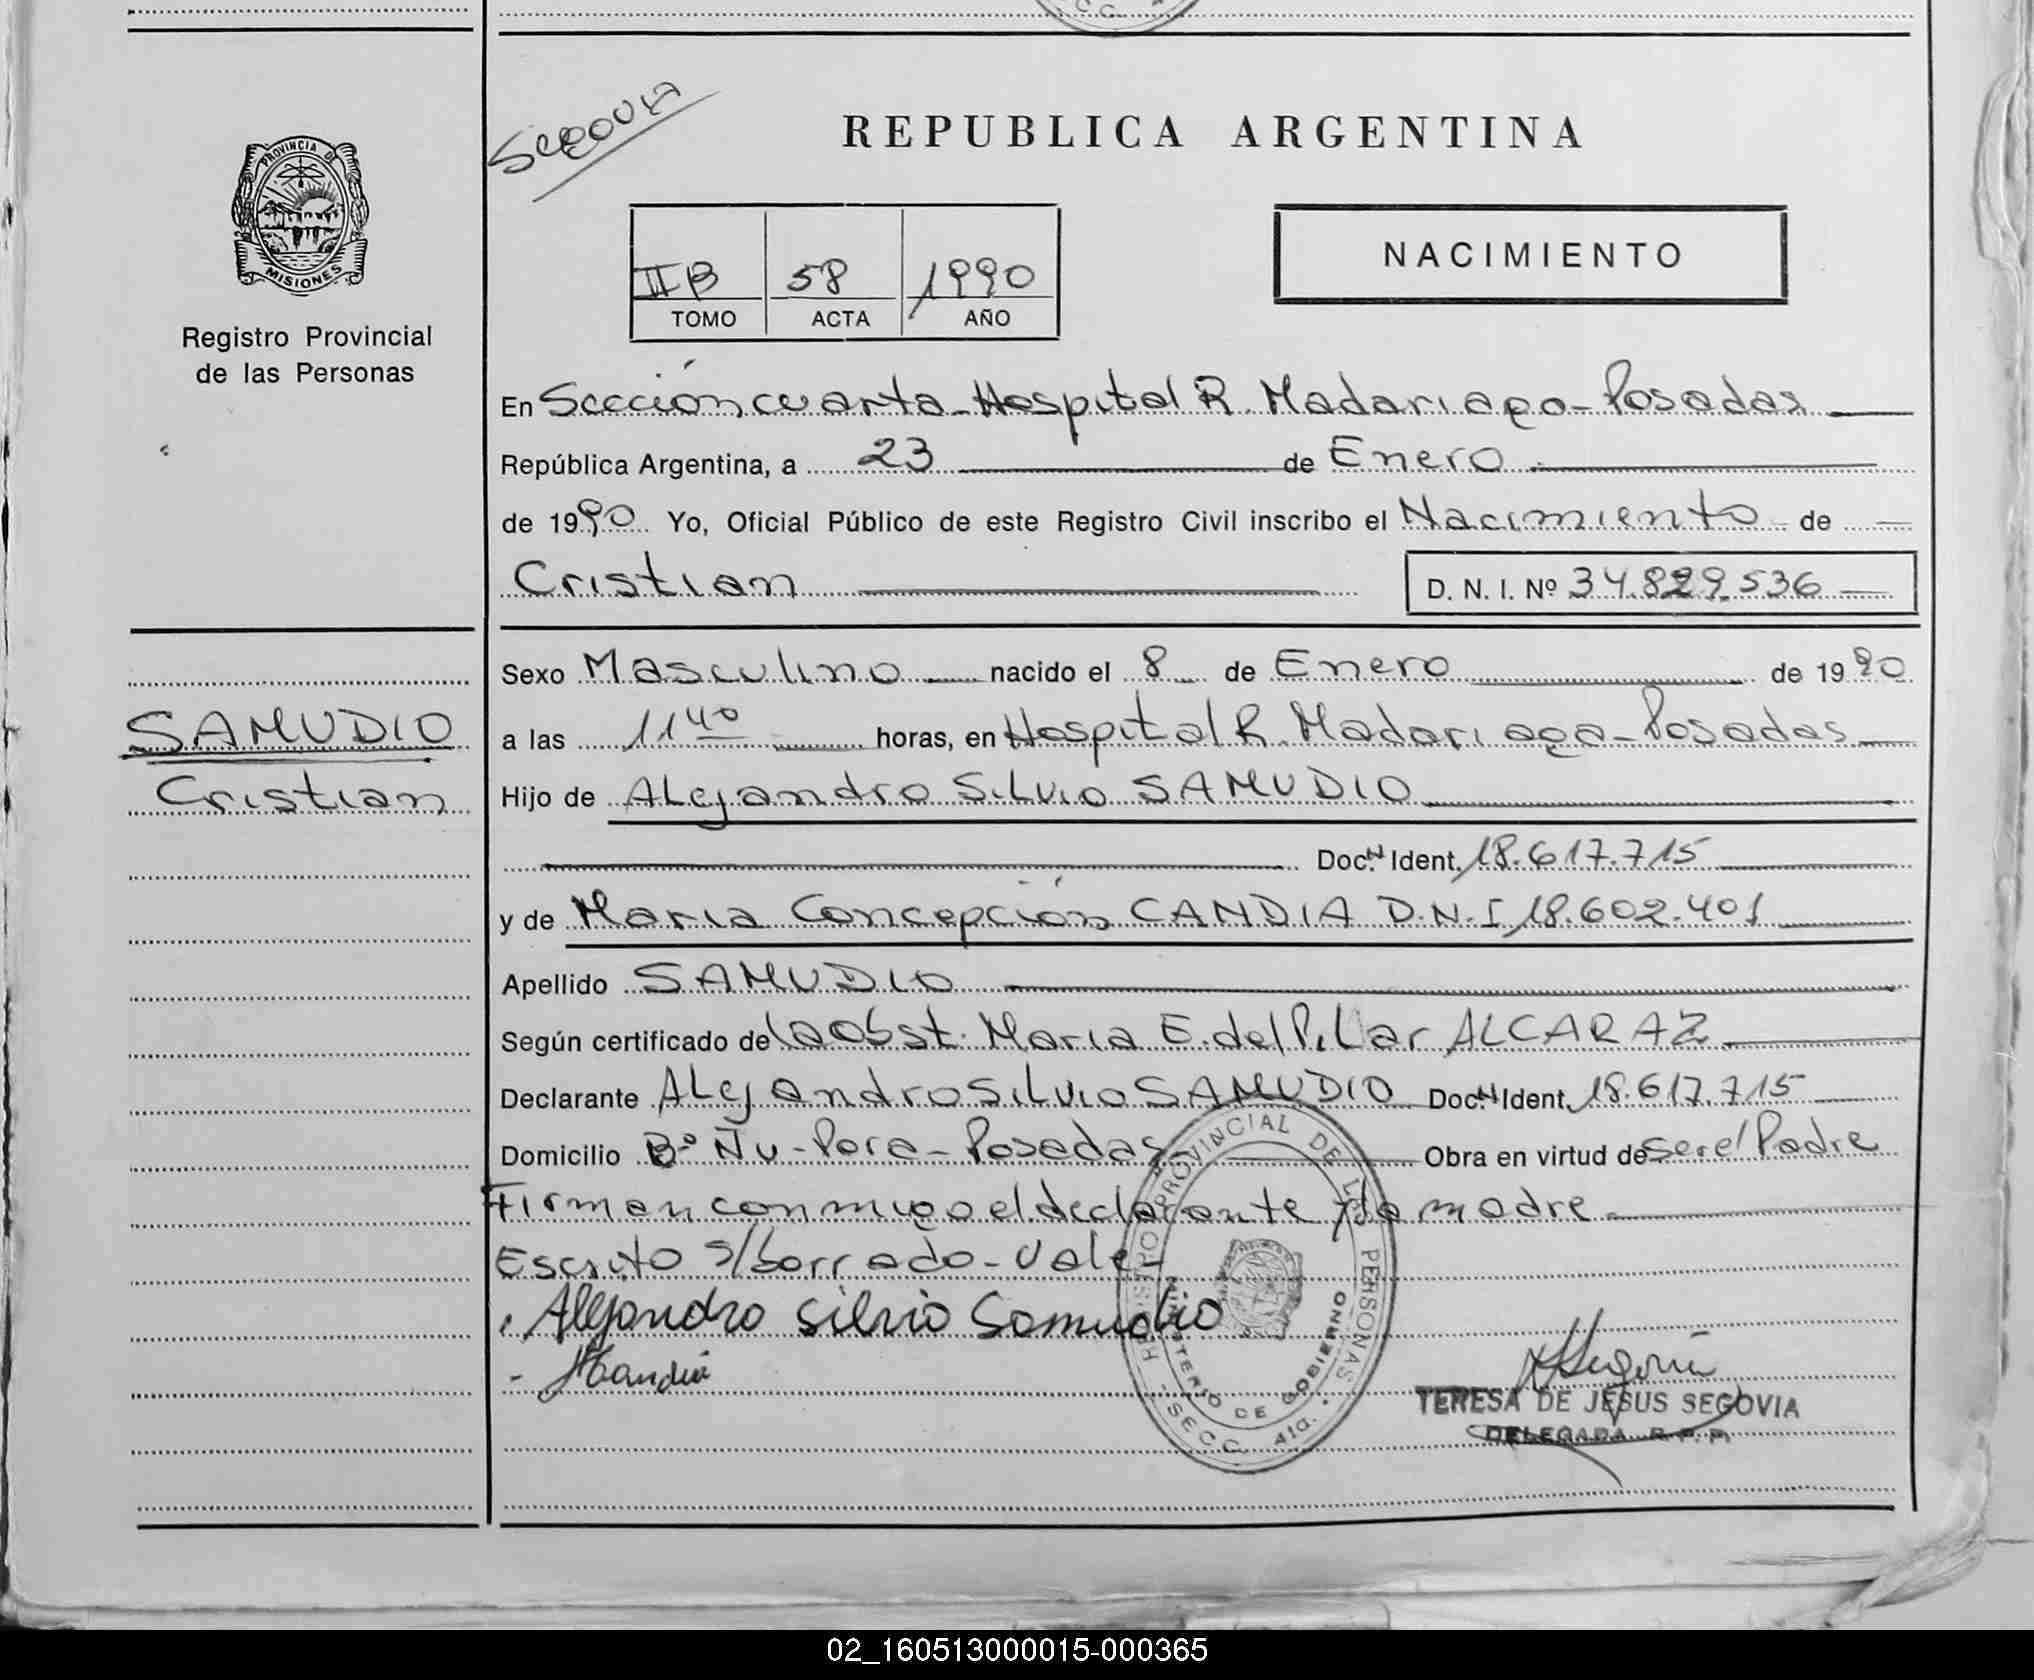 C.C.
SEGOVIA
REPUBLICA ARGENTINA
PROVINCIA DE
MISIONES
Registro Provincial
de las Personas
II B 58 1990
TOMO ACTA AÑO
NACIMIENTO
En Sección cuarta - Hospital R. Madariaga - Posadas
República Argentina, a 23 de Enero
de 1990 Yo, Oficial Público de este Registro Civil inscribo el Nacimiento de
Cristian D. N. I. Nº 34.829.536
Sexo Masculino nacido el 8 de Enero de 1990
SAMUDIO
Cristian
a las 11 40 horas, en Hospital R. Madariaga - Posadas
Hijo de Alejandro Silvio SAMUDIO
Doc. Ident. 18.617.715
y de María Concepción CANDIA D.N.I 18.602.401
Apellido SAMUDIO
Según certificado de la obst. María E. del Pilar ALCARAZ
Declarante Alejandro Silvio SAMUDIO Doc. Ident. 18.617.715
Domicilio Bº Ñu-Pora - Posadas Obra en virtud de ser el Padre
Firman conmigo el declarante y la madre
Escrito s/borrado - Vale -
Alejandro Silvio Samudio
MCandia
REGISTRO PROVINCIAL DE LAS PERSONAS
MINISTERIO DE GOBIERNO
- SECC. 4ta. -
Segovia
TERESA DE JESUS SEGOVIA
DELEGADA R. P. P.
02_160513000015-000365